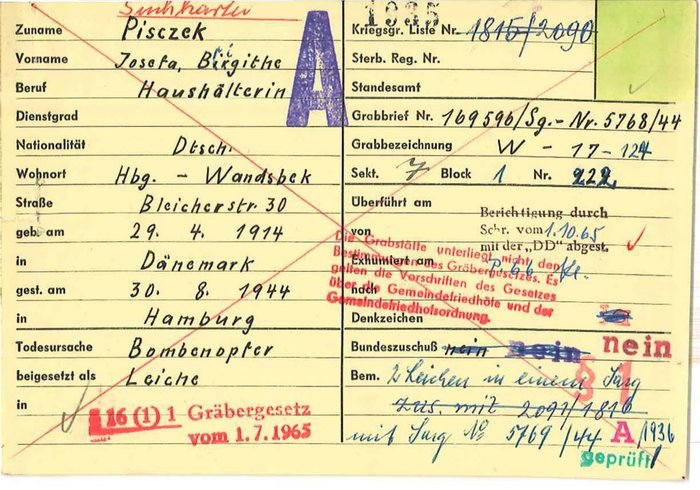 Suchkartei
Zuname Pisczek
Vorname Josefa, Birgithe
Beruf Haushälterin
A
Dienstgrad
Nationalität Dtsch.
Wohnort Hbg. - Wandsbek
Straße Bleicherstr. 30
geb. am 29. 4. 1914
in Dänemark
gest. am 30. 8. 1944
in Hamburg
Todesursache Bombenopfer
beigesetzt als Leiche
in
§ 16 (1) 1 Gräbergesetz
vom 1.7.1965
1935
Kriegsgr. Liste Nr. 1815/2090
Sterb. Reg. Nr.
Standesamt
Grabbrief Nr. 169596/Sg.-Nr. 5768/44
Grabbezeichnung W - 17 - 124
Sekt. 7 Block 1 Nr. 222
Überführt am
Berichtigung durch
von
Schr. vom 1.10.65
mit der „DD" abgest.
Exhumiert am
nach
Die Grabstätte unterliegt nicht den
Bestimmungen des Gräbergesetzes. Es
gelten die Vorschriften des Gesetzes
über die Gemeindefriedhöfe und der
Gemeindefriedhofsordnung.
Denkzeichen
Bundeszuschuß nein nein nein
§ 1
Bem. 2 Leichen in einem Sarg
zus. mit 2091/1816
mit Sarg No 5769/44 A/1936
geprüft